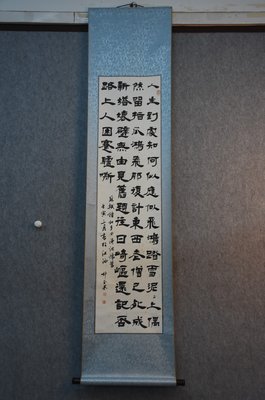 人生到處知何似應似飛鴻踏雪泥〻上偶
然留指爪鴻飛那復計東西老僧已死成
新塔壞壁無由見舊題往日崎嶇還記否
路上人困蹇驢嘶
蘇軾詩和子由澠池懷舊